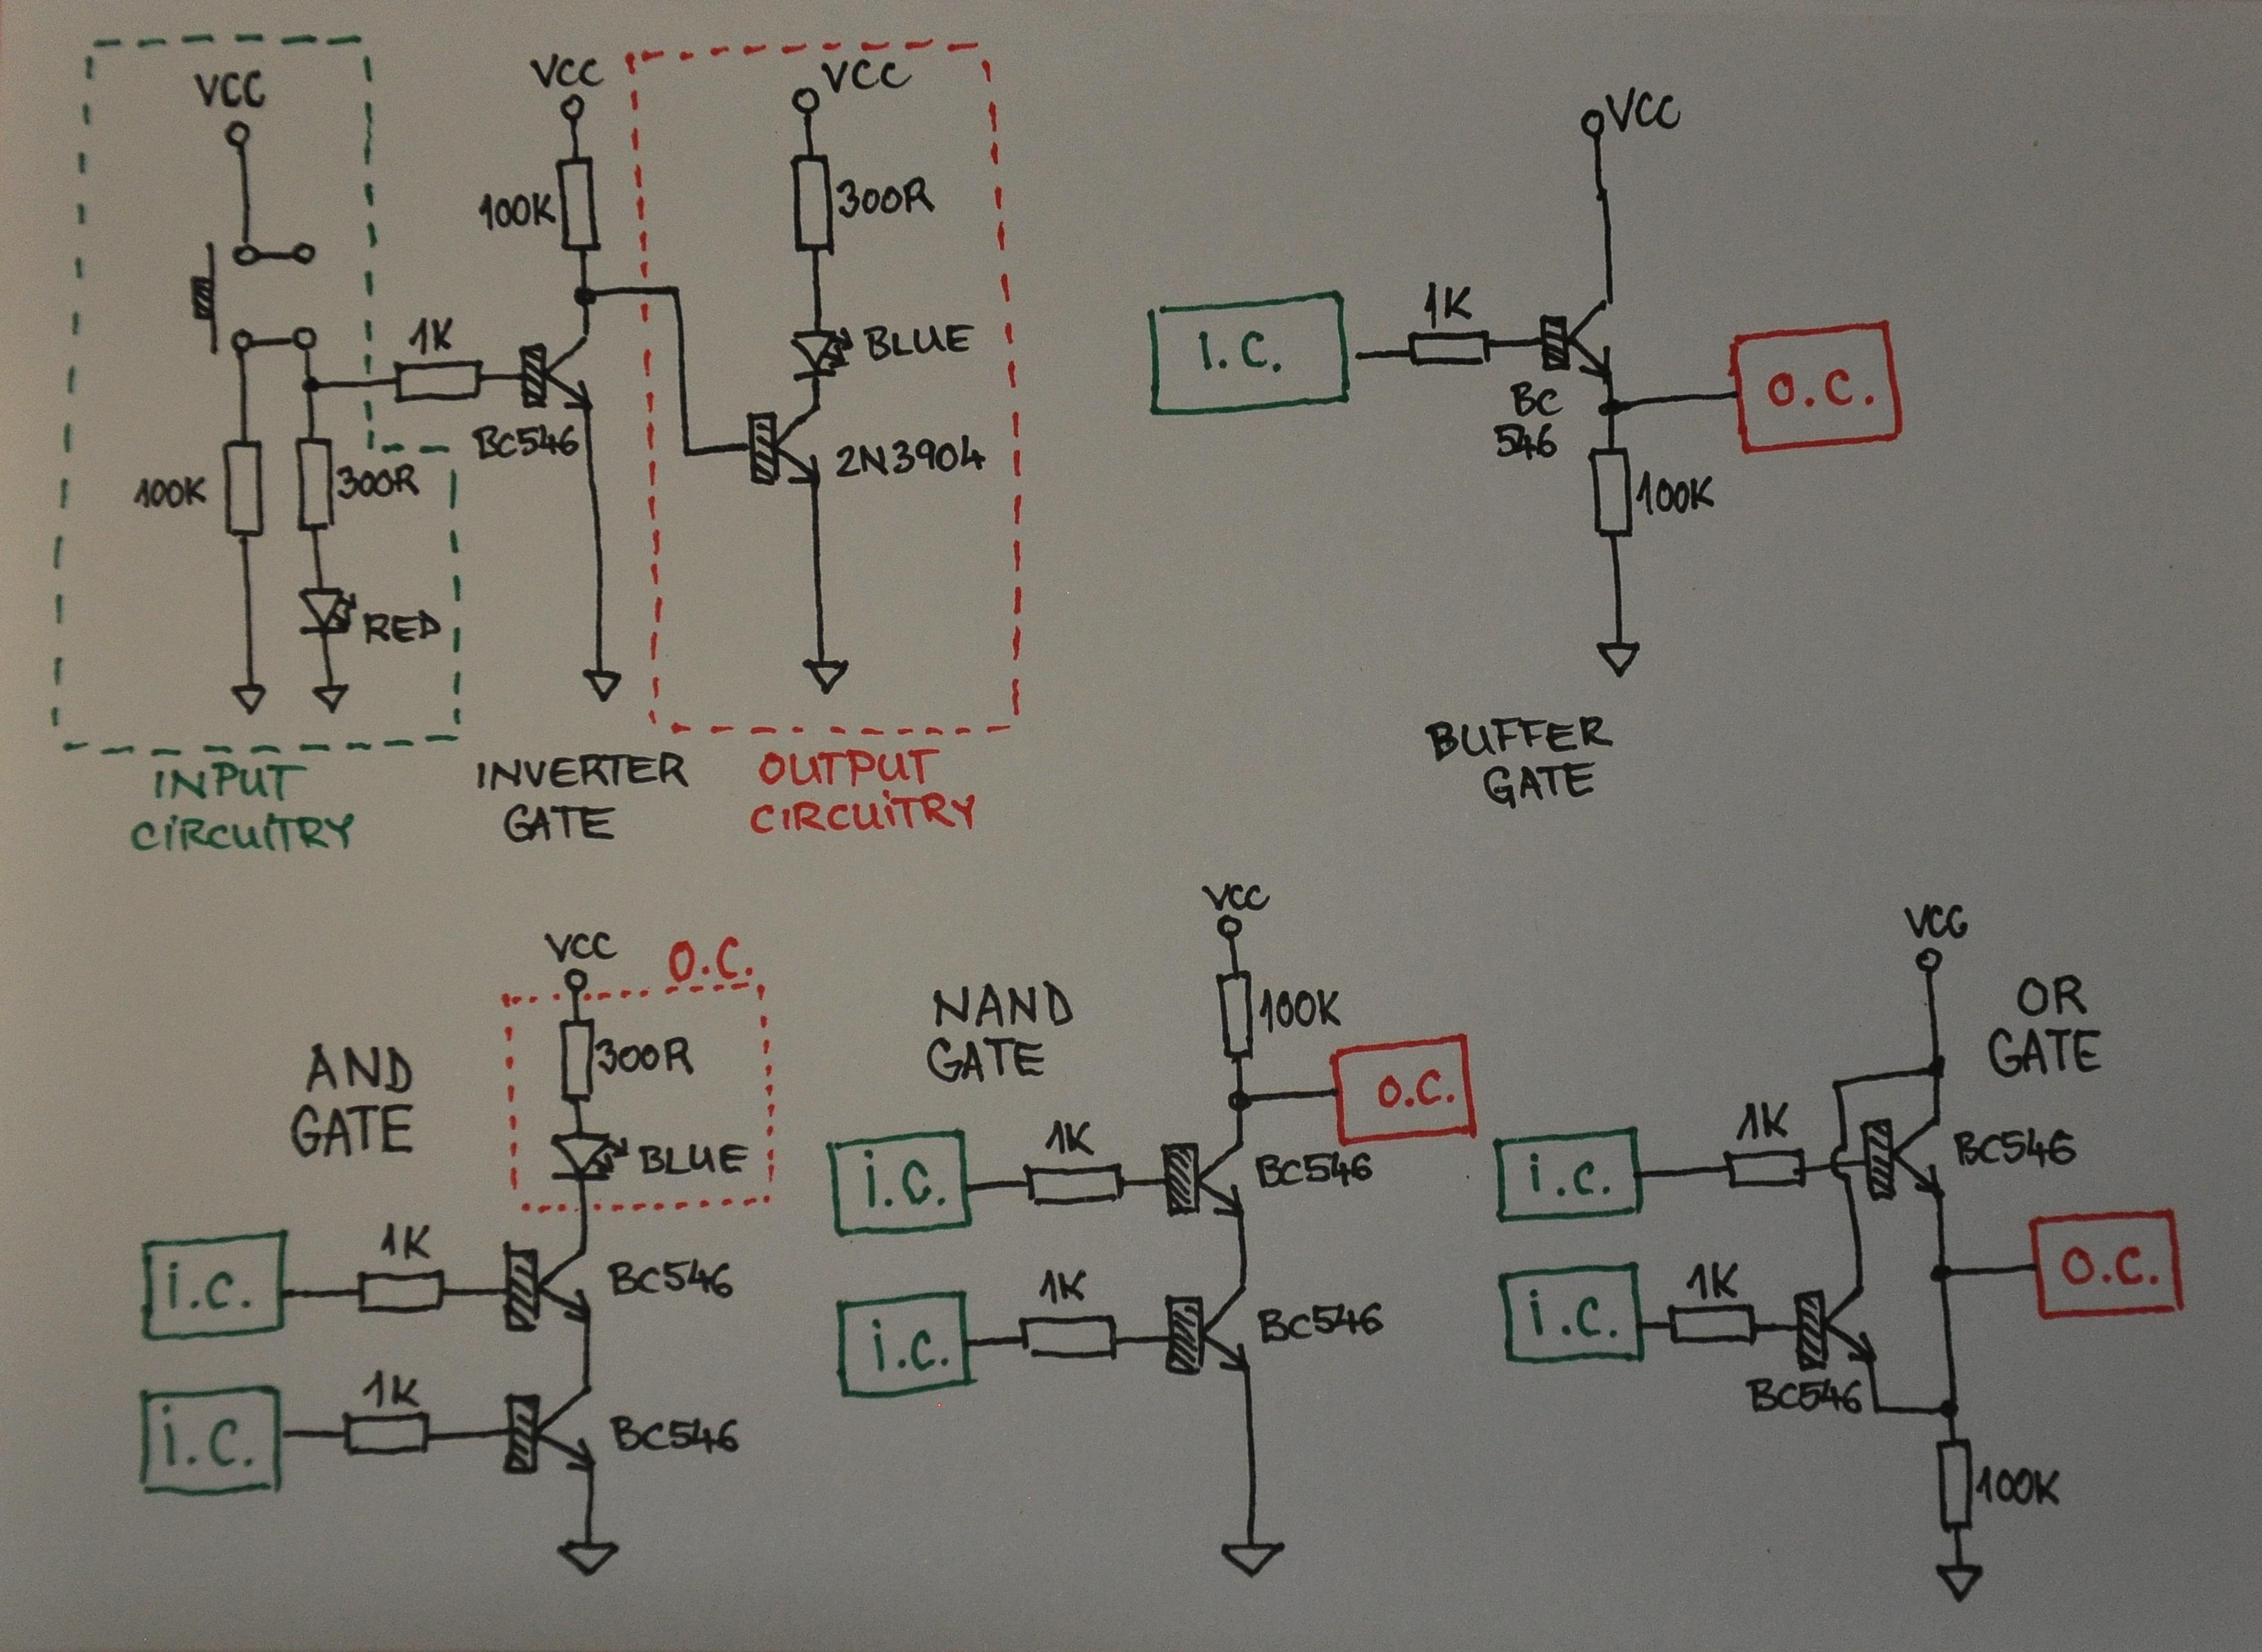 VCC
100K
300R
RED
INPUT
CIRCUITRY
1K
VCC
100K
BC546
INVERTER
GATE
VCC
300R
BLUE
2N3904
OUTPUT
CIRCUITRY
VCC
I.C.
1K
BC
546
O.C.
100K
BUFFER
GATE
AND
GATE
VCC
O.C.
300R
BLUE
i.c.
1K
BC546
i.c.
1K
BC546
NAND
GATE
VCC
100K
O.C.
i.c.
1K
BC546
i.c.
1K
BC546
OR
GATE
VCC
i.c.
1K
BC546
i.c.
1K
BC546
O.C.
100K